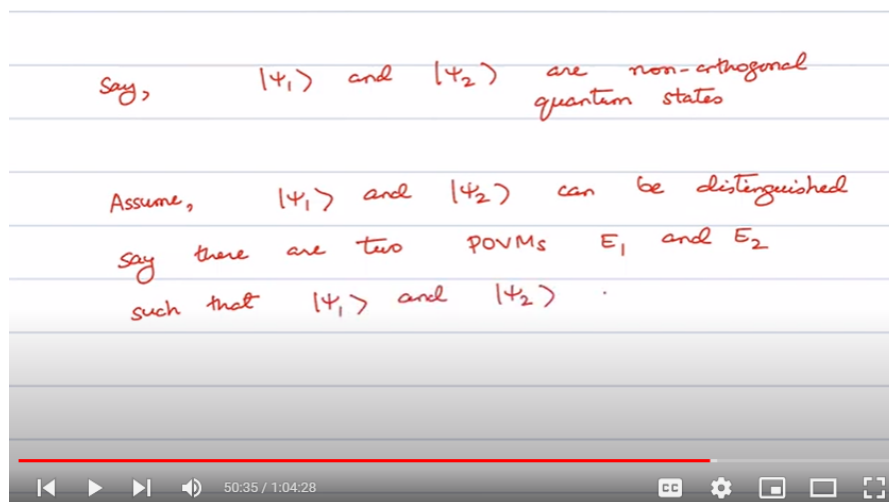 Say, |ψ₁⟩ and |ψ₂⟩ are non-orthogonal
quantum states
Assume, |ψ₁⟩ and |ψ₂⟩ can be distinguished
say there are two POVMs E₁ and E₂
such that |ψ₁⟩ and |ψ₂⟩
50:35 / 1:04:28 CC